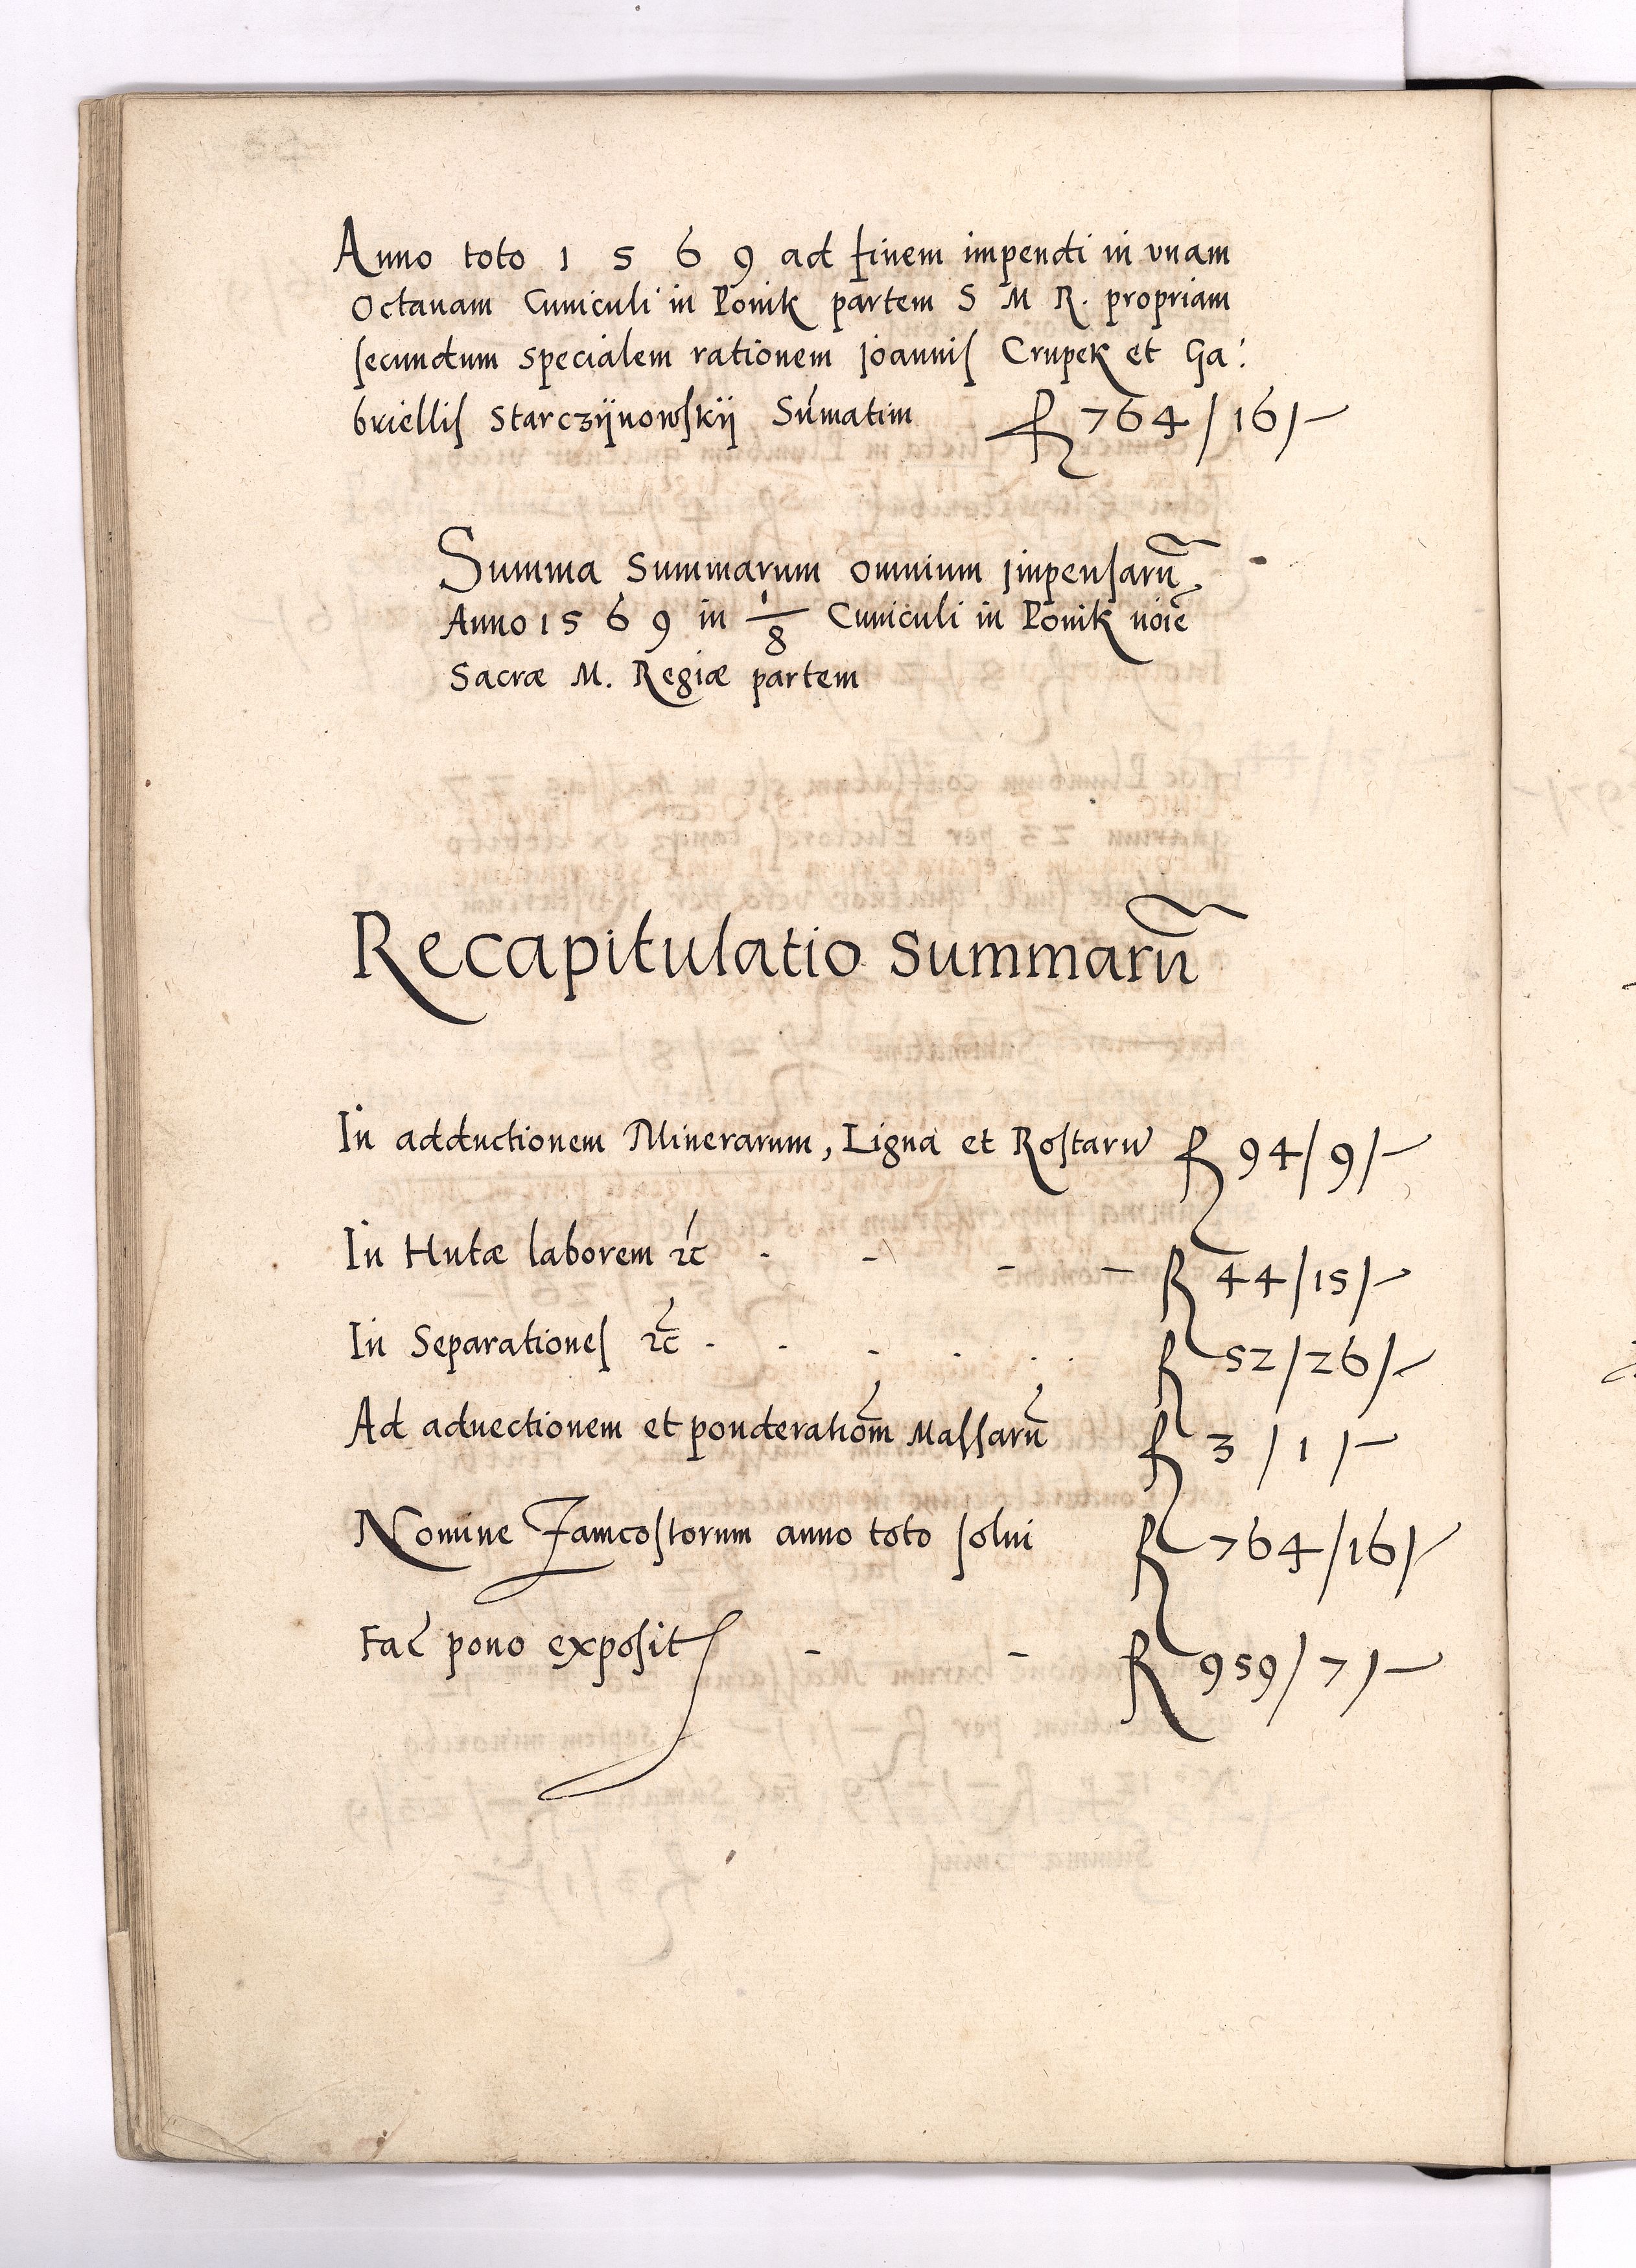 Anno toto 1 5 6 9 ad finem impendi in vnam
Octauam Cuniculi in Ponik partem S M R. propriam
secundum specialem rationem Joannis Crupek et Ga:
briellis Starczÿnowskÿ Sum̄atim R 764/16/-
Summa Summarum omnium jmpensarū
Anno 1 5 6 9 in 1/8 Cuniculi in Ponik noīe
Sacræ M. Regiæ partem
Recapitulatio Summarū
In adductionem Minerarum, Ligna et Rostarū R 94/9/-
In Hutæ laborem ꝛc - - - - R 44/15/-
In Separationes ꝛc - - - - - R 52/26/-
Ad aduectionem et ponderatiom̄ Massarū R 3/1/-
Nomine Zamcostorum anno toto solui R 764/16/-
Fac̄ pono exposit - - R 959/7/-